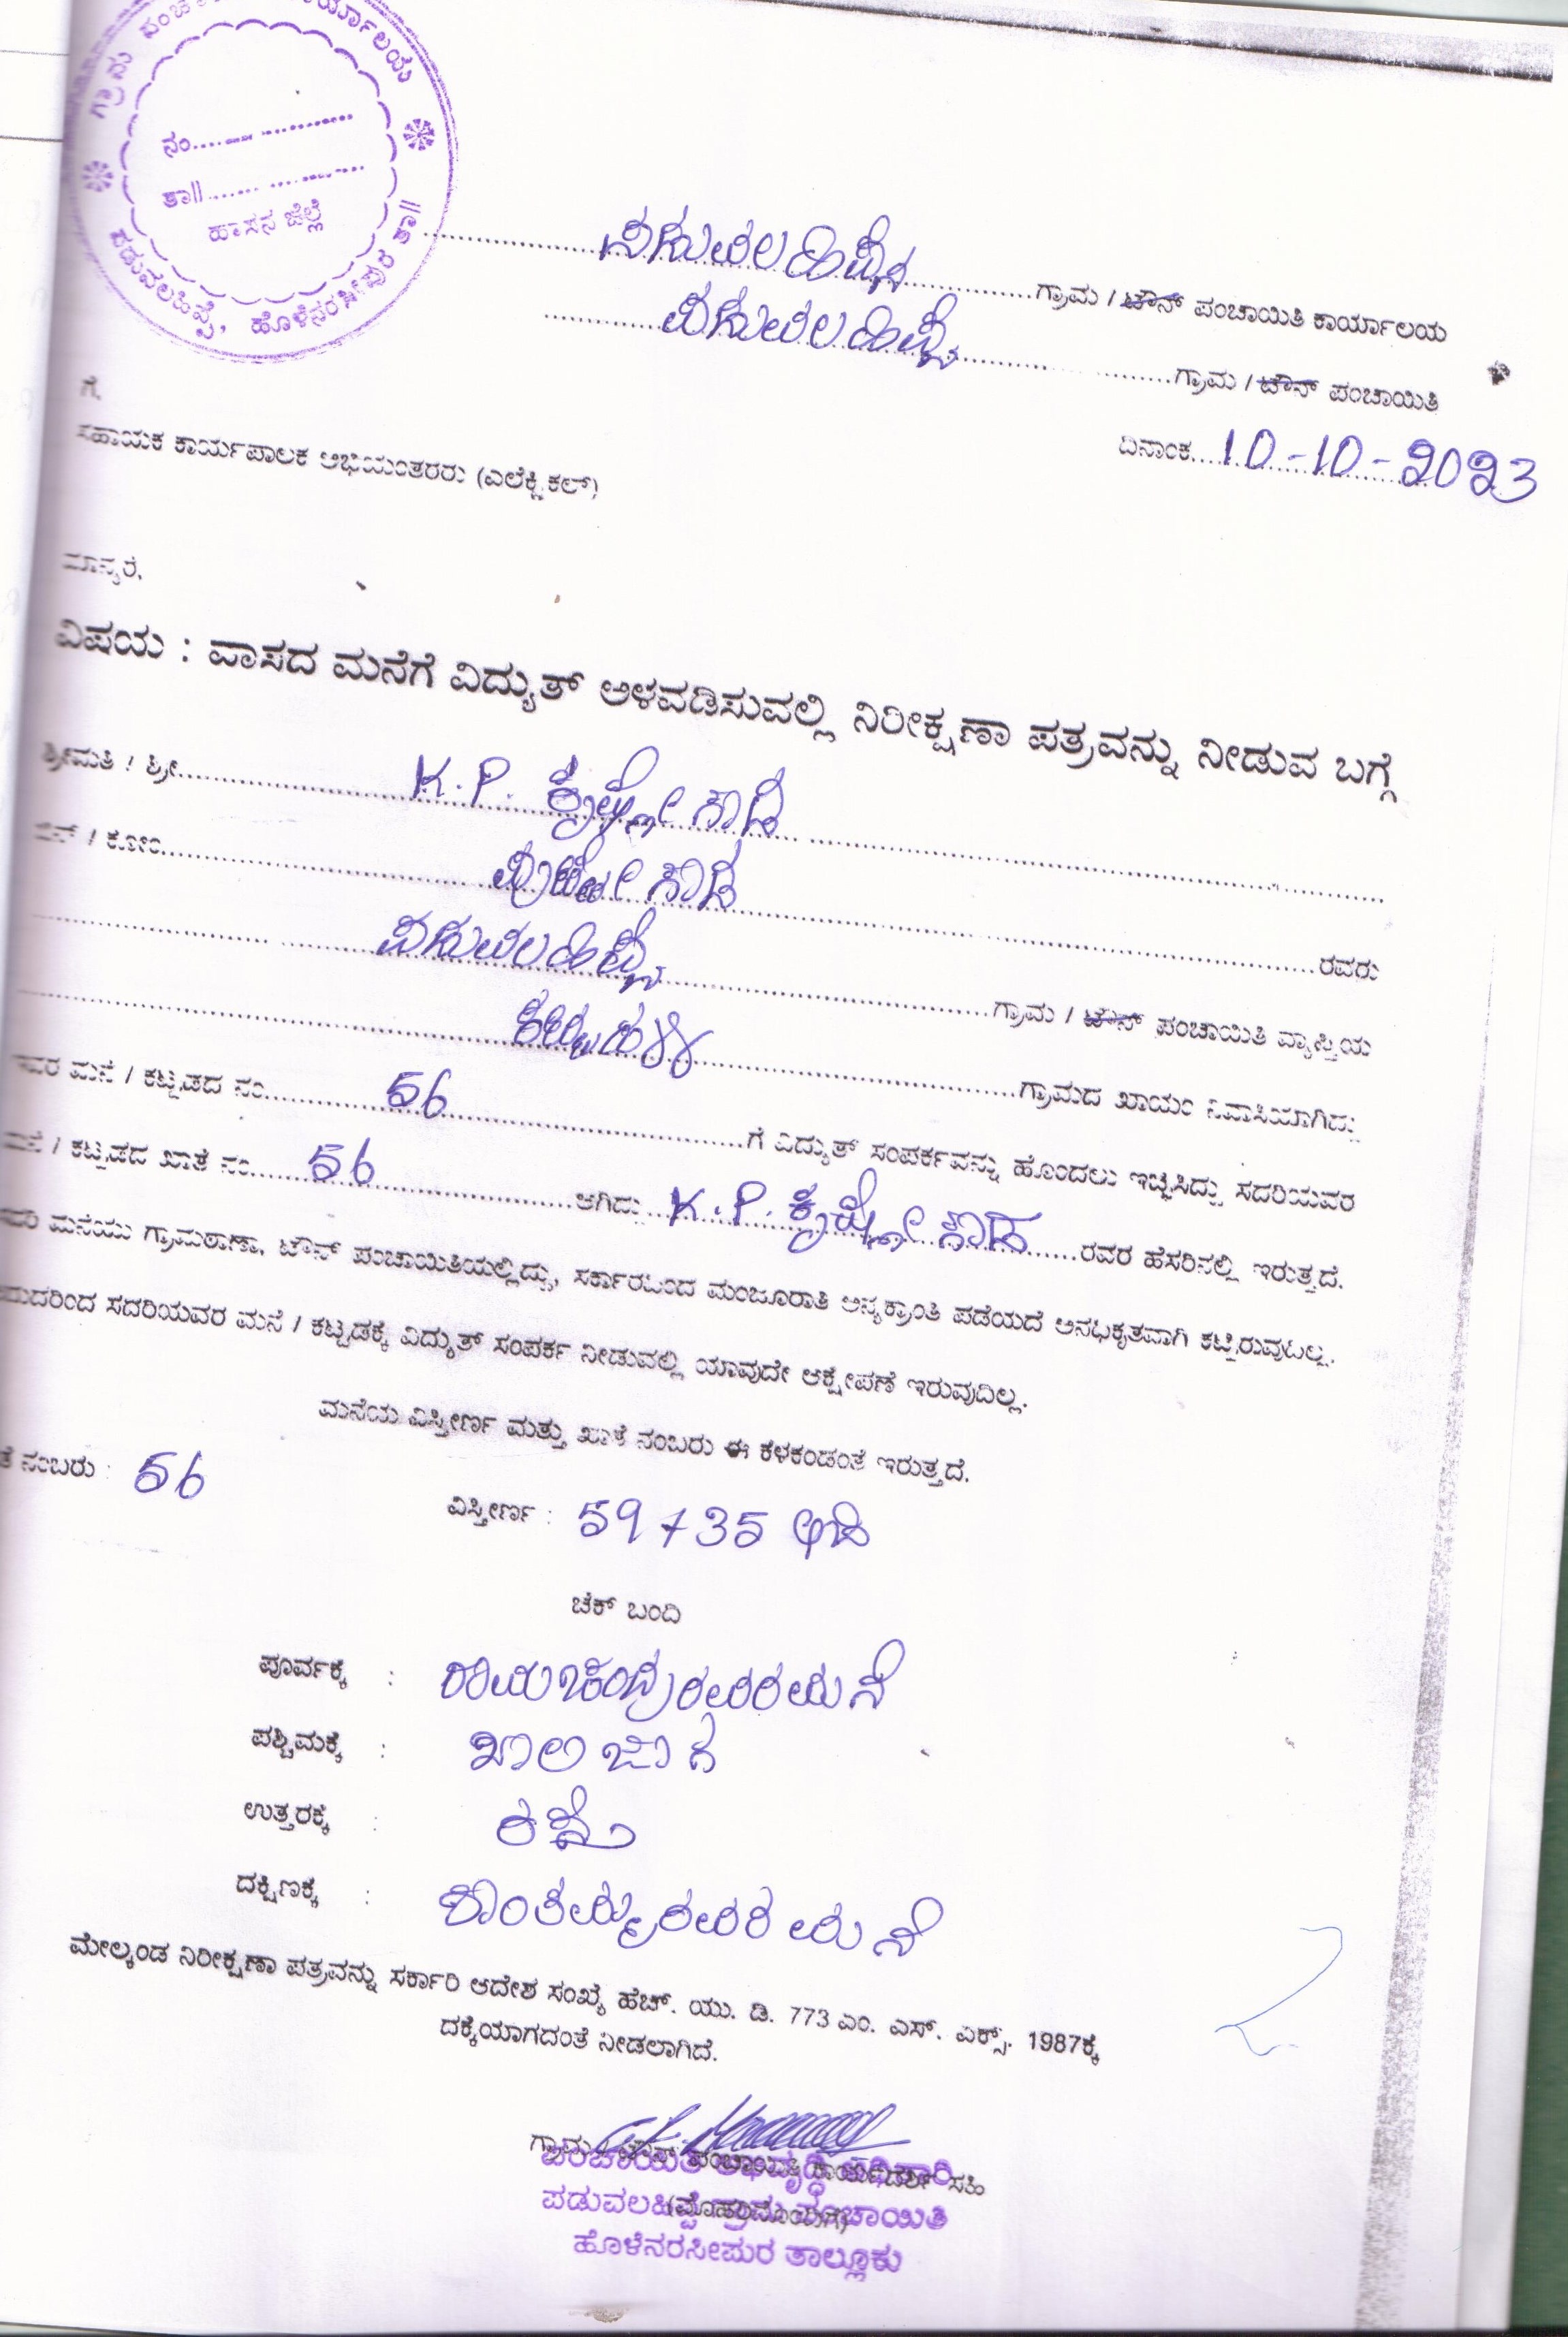 ಗ್ರಾಮ ಪಂಚಾ ಕಾರ್ಯಾಲಯ
ನಂ..................
ತಾ||..................
ಹಾಸನ ಜಿಲ್ಲೆ
ಪಡುವಲಹಿಪ್ಪೆ, ಹೊಳೆನರಸೀಪುರ ತಾ||
ಪಡುವಲಹಿಪ್ಪೆ ಗ್ರಾಮ / ಟೌನ್ ಪಂಚಾಯಿತಿ ಕಾರ್ಯಾಲಯ
ಪಡುವಲಹಿಪ್ಪೆ ಗ್ರಾಮ / ಟೌನ್ ಪಂಚಾಯಿತಿ
ದಿನಾಂಕ 10-10-2023
ಗೆ,
ಸಹಾಯಕ ಕಾರ್ಯಪಾಲಕ ಅಭಿಯಂತರರು (ಎಲೆಕ್ಟ್ರಿಕಲ್)
ಮಾನ್ಯರೆ,
ವಿಷಯ : ವಾಸದ ಮನೆಗೆ ವಿದ್ಯುತ್ ಅಳವಡಿಸುವಲ್ಲಿ ನಿರೀಕ್ಷಣಾ ಪತ್ರವನ್ನು ನೀಡುವ ಬಗ್ಗೆ
ಶ್ರೀಮತಿ / ಶ್ರೀ K.P. ಕೃಷ್ಣೇಗೌಡ
ಬಿನ್ / ಕೋಂ ಗೌಡ ರವರು
ಪಡುವಲಹಿಪ್ಪೆ ಗ್ರಾಮ / ಟೌನ್ ಪಂಚಾಯಿತಿ ವ್ಯಾಪ್ತಿಯ
ಗ್ರಾಮದ ಖಾಯಂ ನಿವಾಸಿಯಾಗಿದ್ದು
ಇವರ ಮನೆ / ಕಟ್ಟಡದ ನಂ. 56 ಗೆ ವಿದ್ಯುತ್ ಸಂಪರ್ಕವನ್ನು ಹೊಂದಲು ಇಚ್ಛಿಸಿದ್ದು ಸದರಿಯವರ
ಮನೆ / ಕಟ್ಟಡದ ಖಾತೆ ನಂ. 56 ಆಗಿದ್ದು K.P. ಕೃಷ್ಣೇಗೌಡ ರವರ ಹೆಸರಿನಲ್ಲಿ ಇರುತ್ತದೆ.
ಸದರಿ ಮನೆಯು ಗ್ರಾಮಠಾಣಾ, ಟೌನ್ ಪಂಚಾಯಿತಿಯಲ್ಲಿದ್ದು, ಸರ್ಕಾರದಿಂದ ಮಂಜೂರಾತಿ ಅನ್ಯಕ್ರಾಂತಿ ಪಡೆಯದೆ ಅನಧಿಕೃತವಾಗಿ ಕಟ್ಟಿರುವುದಿಲ್ಲ.
ಆದುದರಿಂದ ಸದರಿಯವರ ಮನೆ / ಕಟ್ಟಡಕ್ಕೆ ವಿದ್ಯುತ್ ಸಂಪರ್ಕ ನೀಡುವಲ್ಲಿ ಯಾವುದೇ ಆಕ್ಷೇಪಣೆ ಇರುವುದಿಲ್ಲ.
ಮನೆಯ ವಿಸ್ತೀರ್ಣ ಮತ್ತು ಖಾತೆ ನಂಬರು ಈ ಕೆಳಕಂಡಂತೆ ಇರುತ್ತದೆ.
ತೆ ನಂಬರು : 56
ವಿಸ್ತೀರ್ಣ : 59 + 35 ಅಡಿ
ಚೆಕ್ ಬಂದಿ
ಪೂರ್ವಕ್ಕೆ : ರಾಮಚಂದ್ರರವರ ಮನೆ
ಪಶ್ಚಿಮಕ್ಕೆ : ಖಾಲಿ ಜಾಗ
ಉತ್ತರಕ್ಕೆ : ರಸ್ತೆ
ದಕ್ಷಿಣಕ್ಕೆ : ಶಾಂತಮ್ಮರವರ ಮನೆ
ಮೇಲ್ಕಂಡ ನಿರೀಕ್ಷಣಾ ಪತ್ರವನ್ನು ಸರ್ಕಾರಿ ಆದೇಶ ಸಂಖ್ಯೆ ಹೆಚ್. ಯು. ಡಿ. 773 ಎಂ. ಎಸ್. ಎಕ್ಸ್. 1987ಕ್ಕೆ
ದಕ್ಕೆಯಾಗದಂತೆ ನೀಡಲಾಗಿದೆ.
2
ಗ್ರಾಮ / ಟೌನ್ ಪಂಚಾಯಿತಿ ಕಾರ್ಯದರ್ಶಿ ಸಹಿ
ಪಂಚಾಯಿತಿ ಅಭಿವೃದ್ಧಿ ಅಧಿಕಾರಿ
(ಮೊಹರಿನೊಂದಿಗೆ)
ಪಡುವಲಹಿಪ್ಪೆ ಗ್ರಾಮ ಪಂಚಾಯಿತಿ
ಹೊಳೆನರಸೀಪುರ ತಾಲ್ಲೂಕು